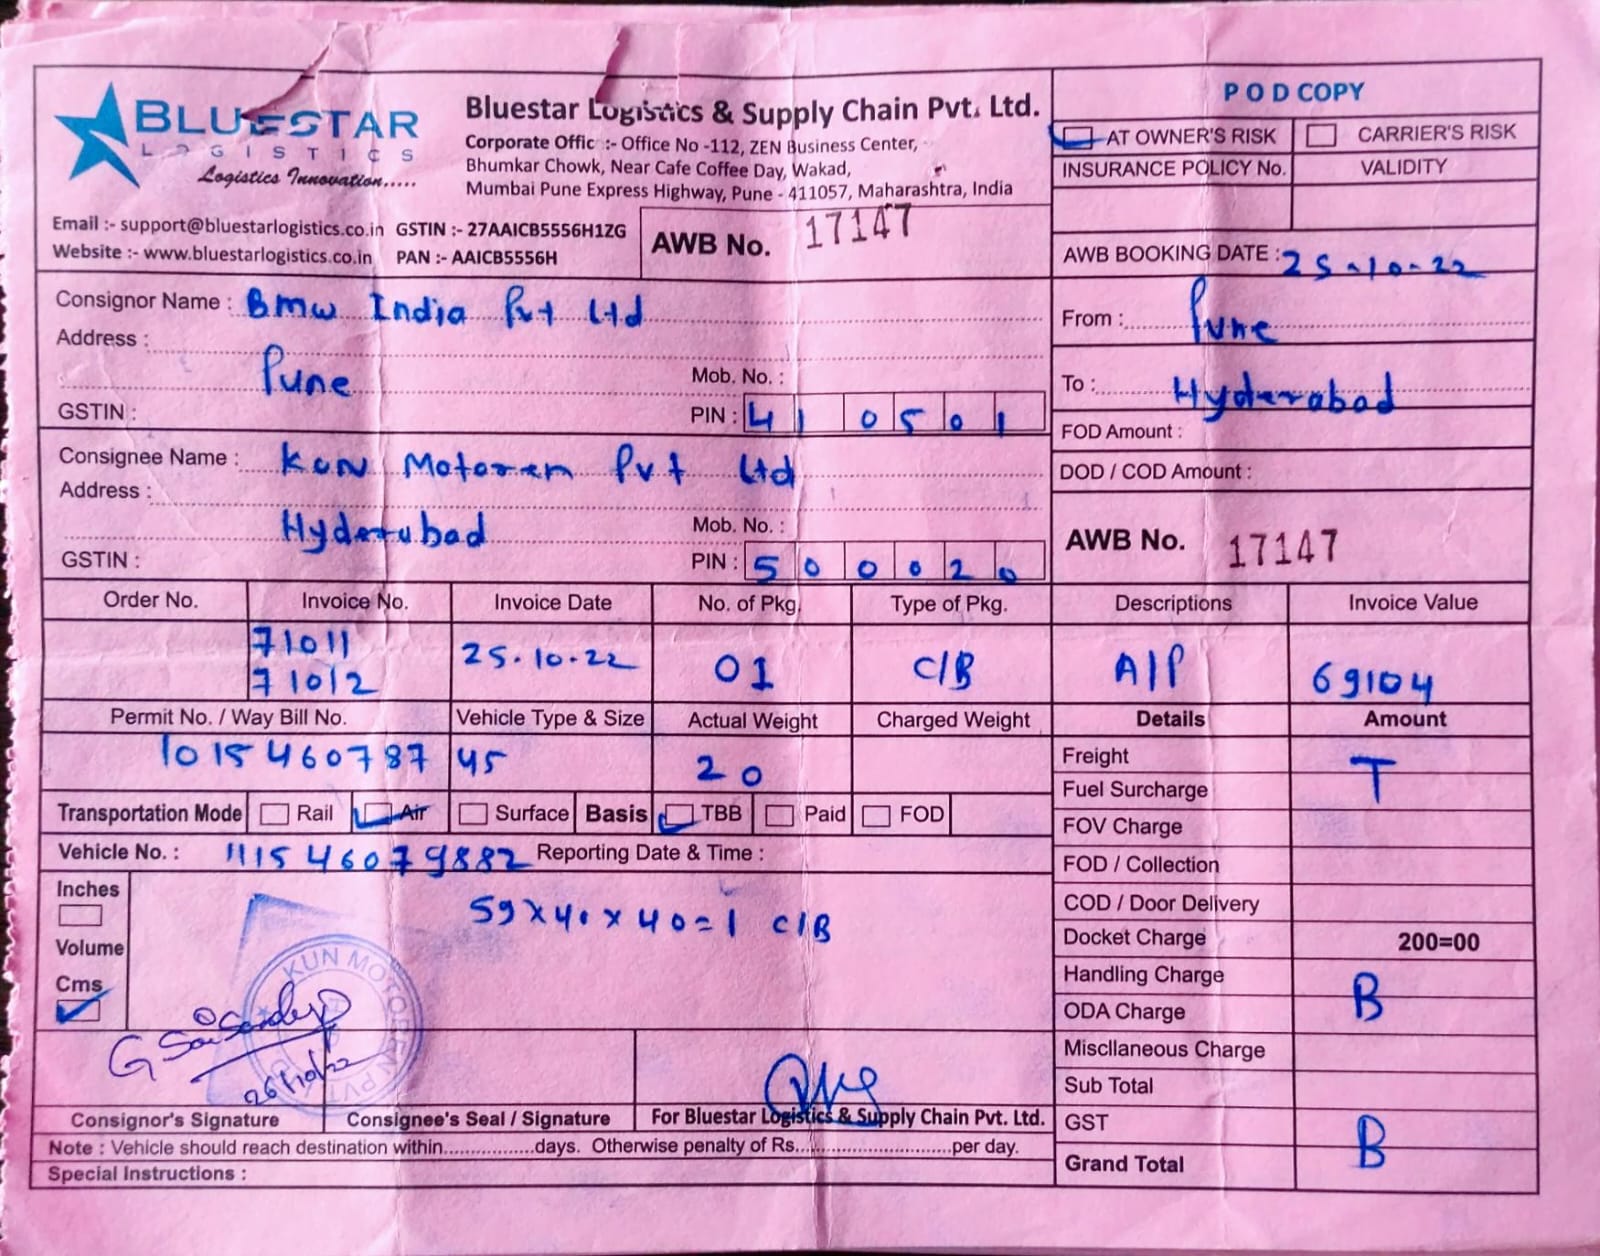 BLUESTAR
LOGISTICS
Logistics Innovation.....
Bluestar Logistics & Supply Chain Pvt. Ltd.
Corporate Offic :- Office No -112, ZEN Business Center,
Bhumkar Chowk, Near Cafe Coffee Day, Wakad,
Mumbai Pune Express Highway, Pune - 411057, Maharashtra, India
Email :- support@bluestarlogistics.co.in GSTIN :- 27AAICB5556H1ZG
Website :- www.bluestarlogistics.co.in PAN :- AAICB5556H
AWB No. 17147
POD COPY
AT OWNER'S RISK CARRIER'S RISK
INSURANCE POLICY No. VALIDITY
AWB BOOKING DATE : 25-10-22
From : Pune
To : Hyderabad
FOD Amount :
DOD / COD Amount :
AWB No. 17147
Consignor Name : BMW India Pvt Ltd
Address :
Pune Mob. No. :
GSTIN : PIN : 410501
Consignee Name : KUN Motoren Pvt Ltd
Address :
Hyderabad Mob. No. :
GSTIN : PIN : 500020
Order No. Invoice No. Invoice Date No. of Pkg. Type of Pkg. Descriptions Invoice Value
71011
71012 25.10.22 01 C/B A/P 69104
Permit No. / Way Bill No. Vehicle Type & Size Actual Weight Charged Weight Details Amount
1015460787 45 20
Transportation Mode Rail Air Surface Basis TBB Paid FOD
Vehicle No. : 111546079882 Reporting Date & Time :
Inches
Volume
Cms
59x40x40=1 C/B
KUN MOTOREN PVT
G Sai Sandeep
26/10/22
Consignor's Signature Consignee's Seal / Signature For Bluestar Logistics & Supply Chain Pvt. Ltd.
Note : Vehicle should reach destination within.................days. Otherwise penalty of Rs.............................per day.
Special Instructions :
Freight T
Fuel Surcharge
FOV Charge
FOD / Collection
COD / Door Delivery
Docket Charge 200=00
Handling Charge B
ODA Charge
Miscllaneous Charge
Sub Total
GST B
Grand Total